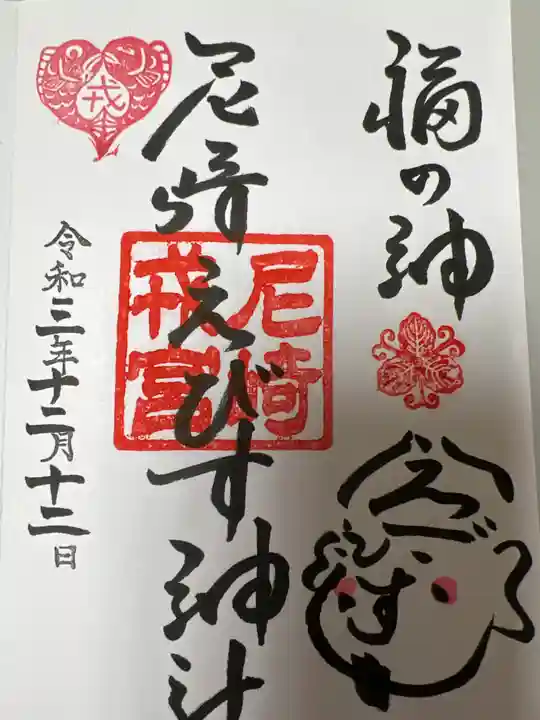 福の神
えびす
尼崎えびす神社
尼崎
戎宮
戎
令和三年十二月十二日